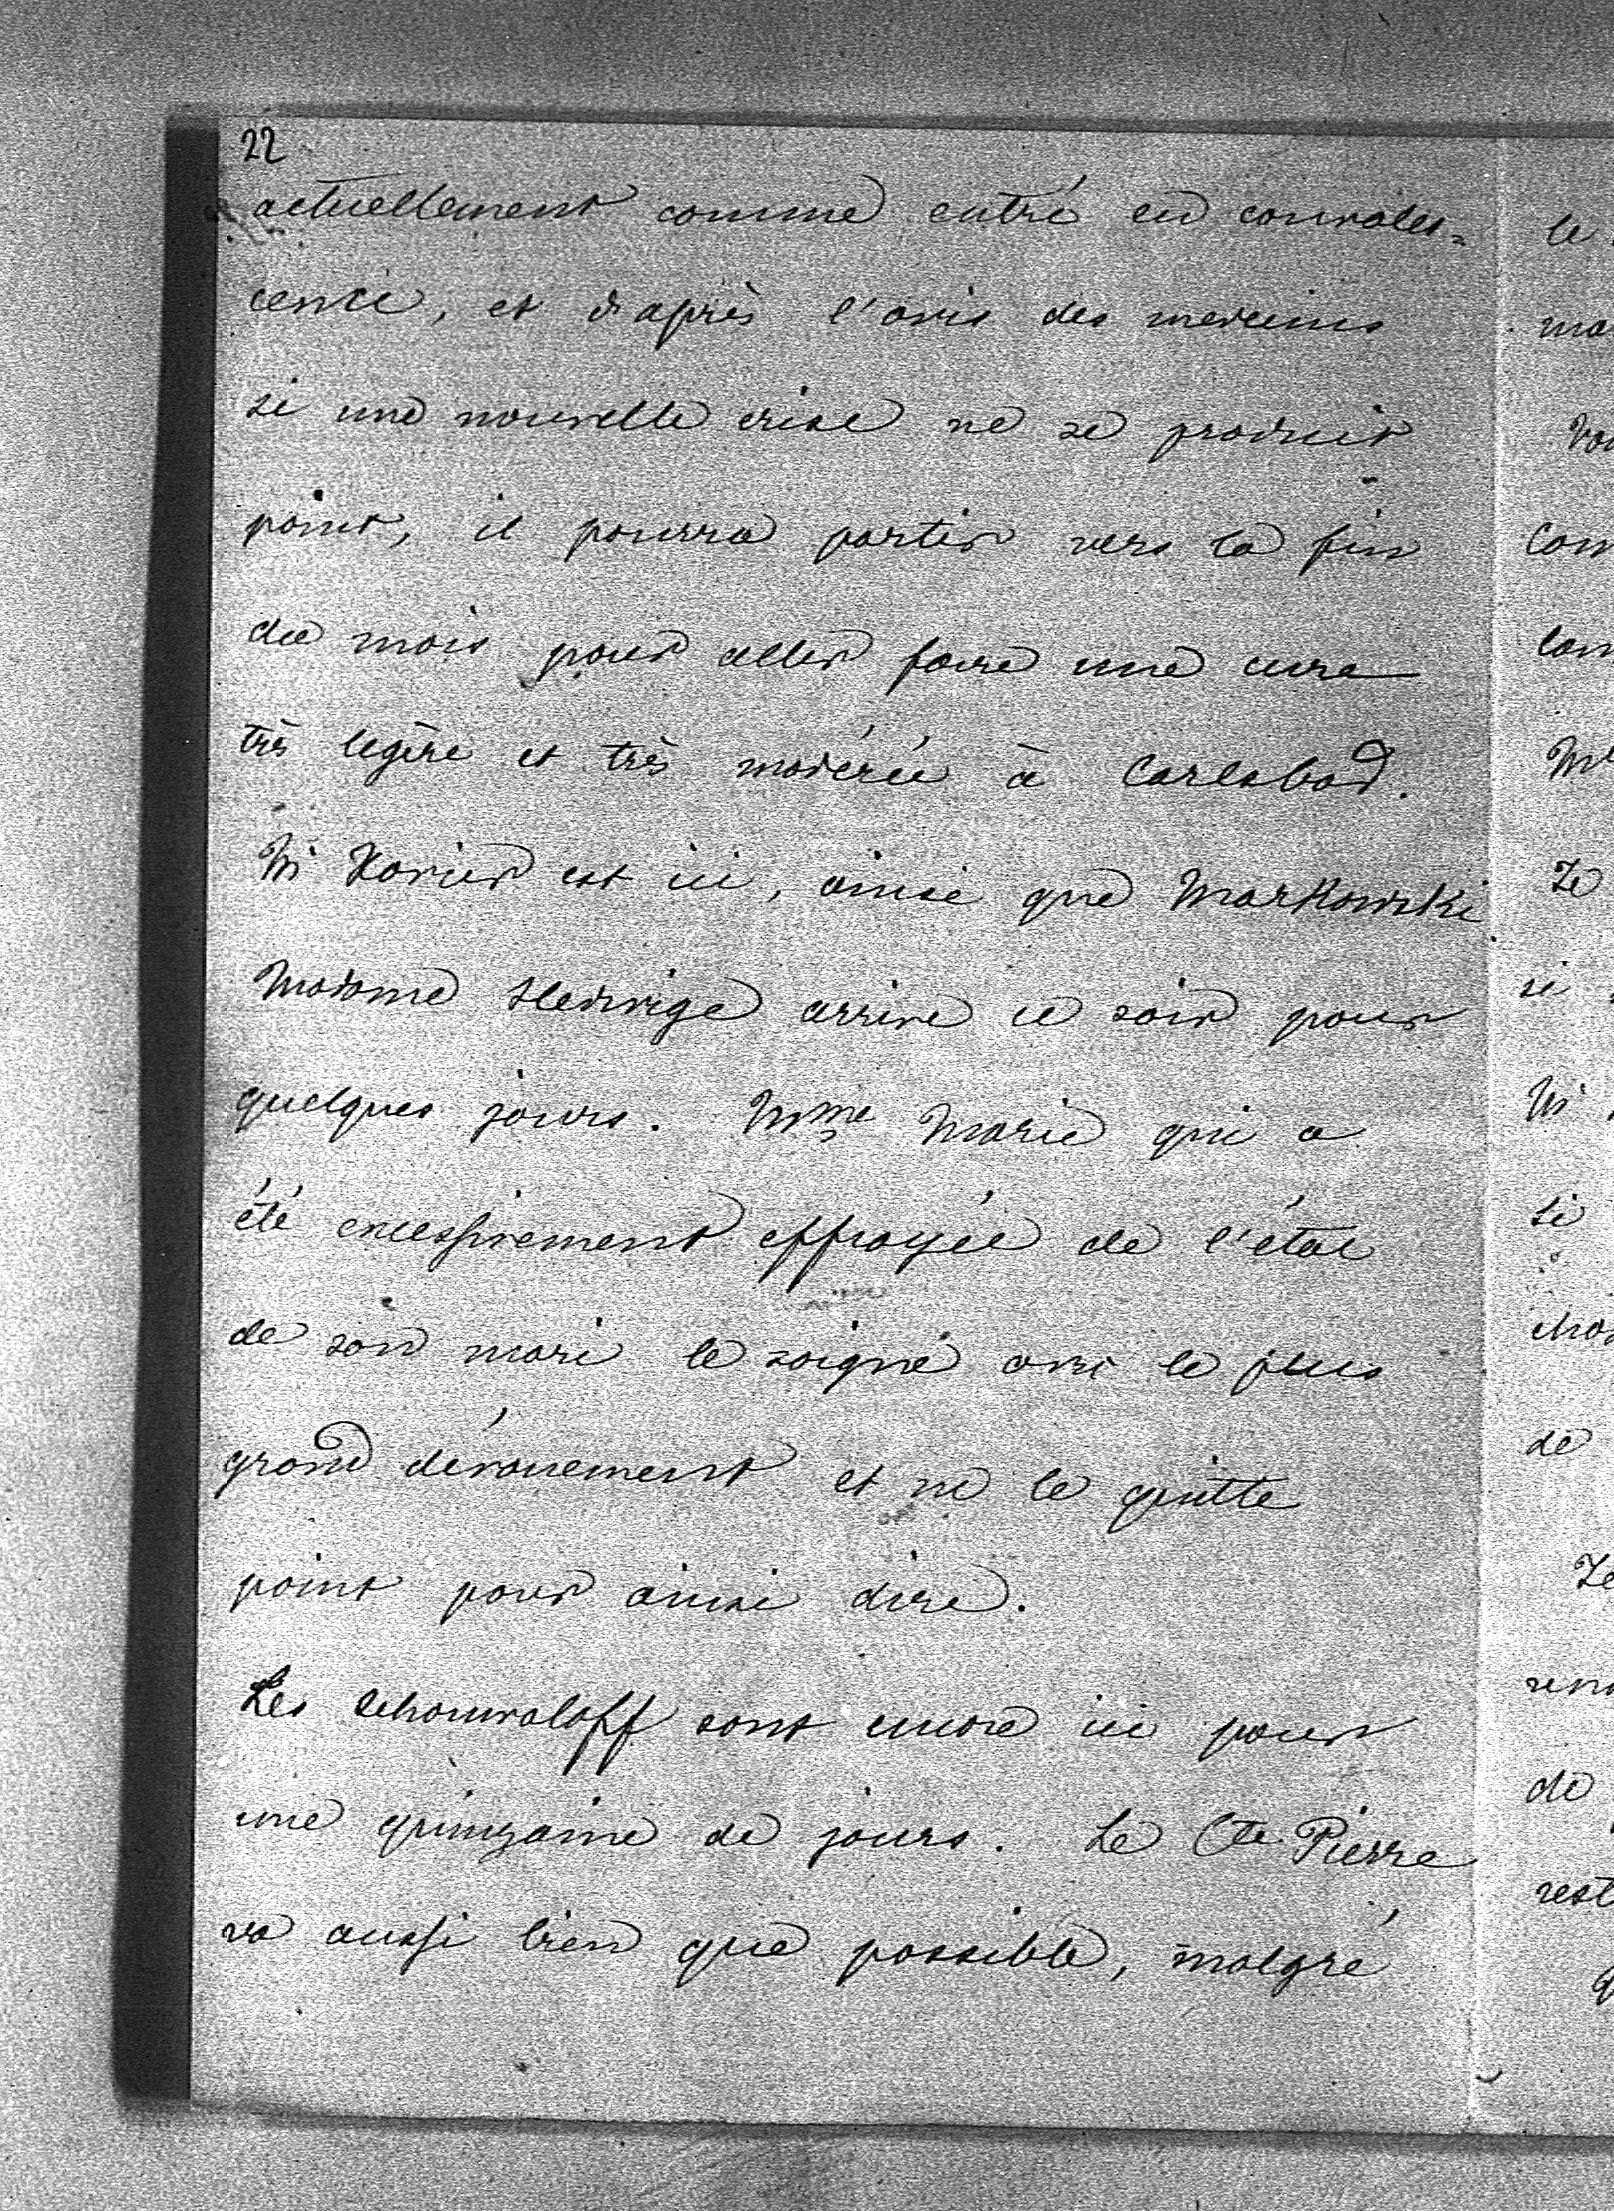 22
actuellement comme entré en convales=
cence, et d'après l'avis des medecins
si une nouvelle crise ne se produit
point, il pourra partir vers la fin
du mois pour aller faire une cure
très legère et très modérée à Carlsbad.
Mr Xavier est ici, ainsi que Markowski
Madame Hedwige arrive ce soir pour
quelques jours. Mme Marie qui a
été excessivement effrayée de l'état
de son mari le soigne avec le plus
grand dévouement et ne le quitte
point pour ainsi dire.
Les Schouvaloff sont encore ici pour
une quinzaine de jours. Le Cte Pierre
va aussi bien que possible, malgré